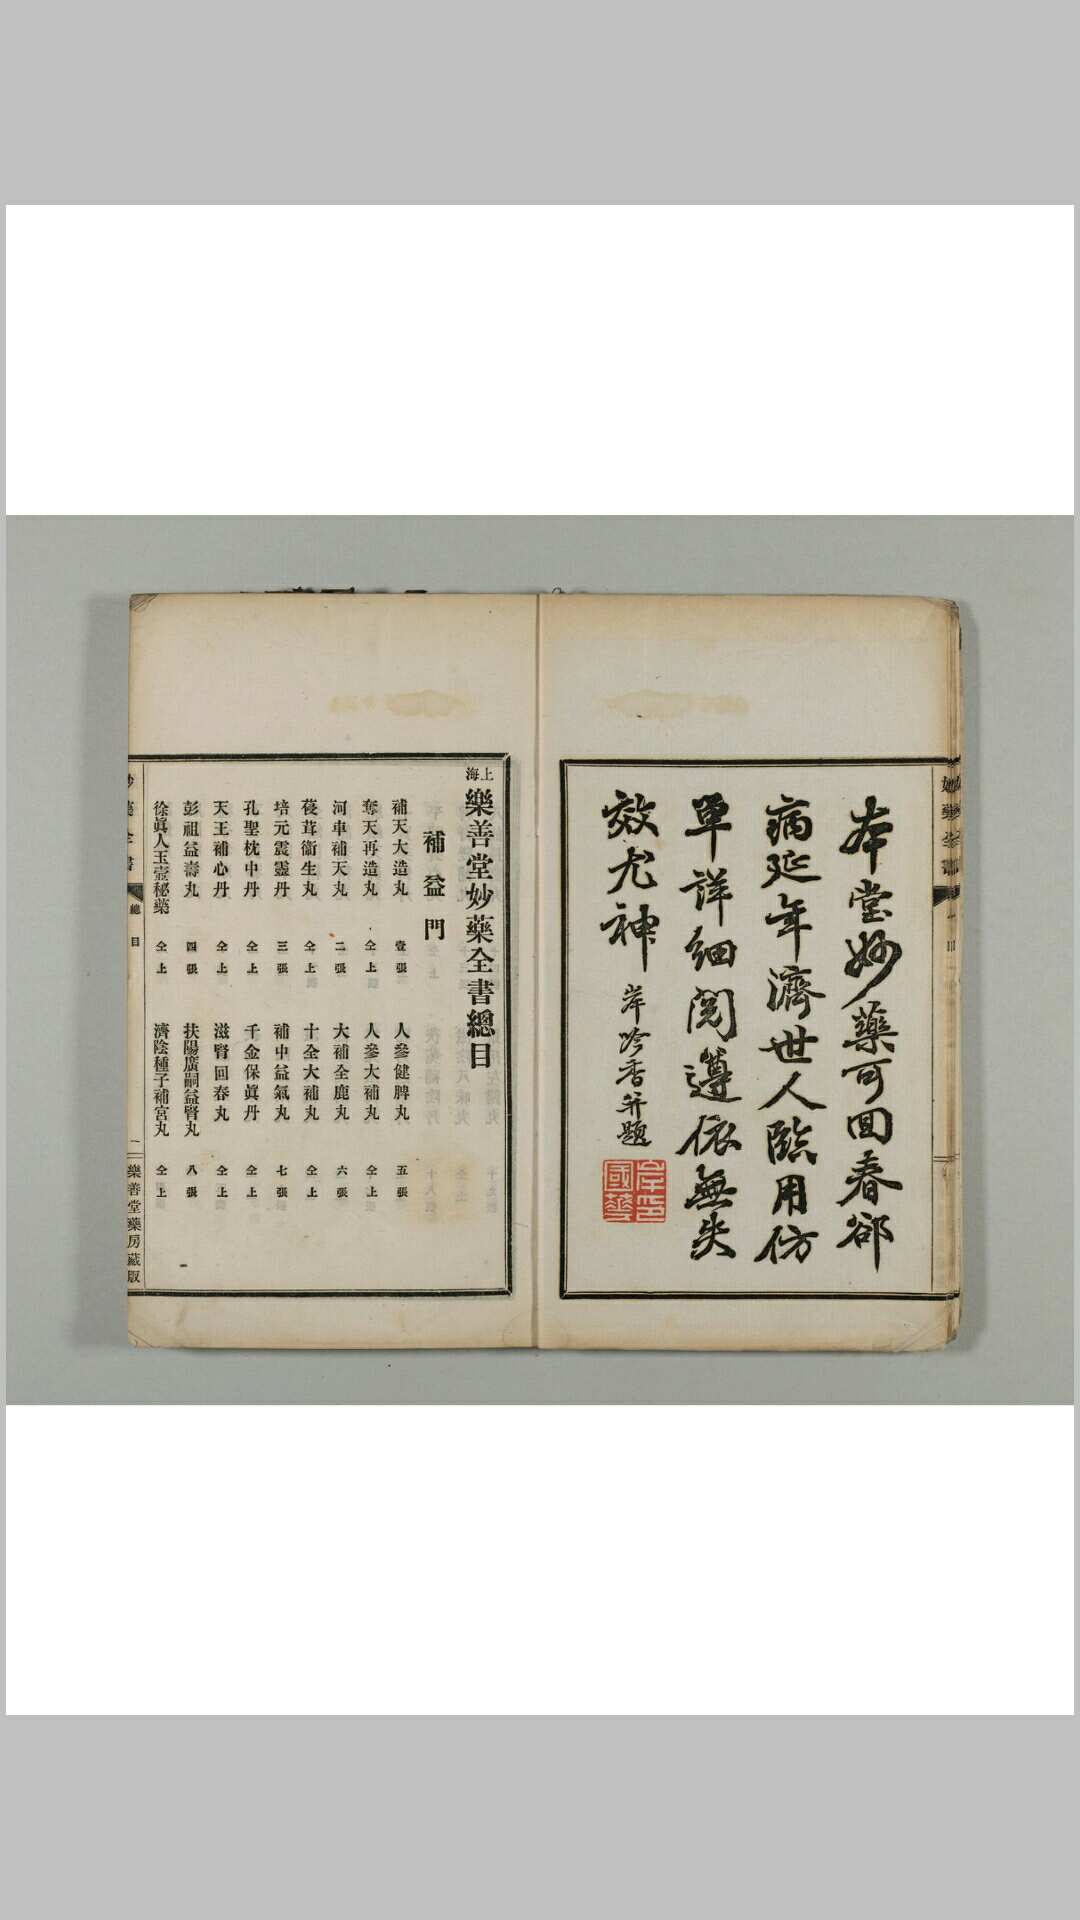 本堂妙藥可回春郤
病延年濟世人臨用仿
單詳細閱遵依無失
效尤神
岸吟香并題
上海
樂善堂妙藥全書總目
補益門
補天大造丸 壹張 人參健脾丸 五張
奪天再造丸 仝上 人參大補丸 仝上
河車補天丸 二張 大補全鹿丸 六張
葠茸衞生丸 仝上 十全大補丸 仝上
培元震靈丹 三張 補中益氣丸 七張
孔聖枕中丹 仝上 千金保眞丹 仝上
天王補心丹 仝上 滋腎回春丸 仝上
彭祖益壽丸 四張 扶陽廣嗣益腎丸 八張
徐眞人玉壺秘藥 仝上 濟陰種子補宮丸 仝上
總目
樂善堂藥房藏版